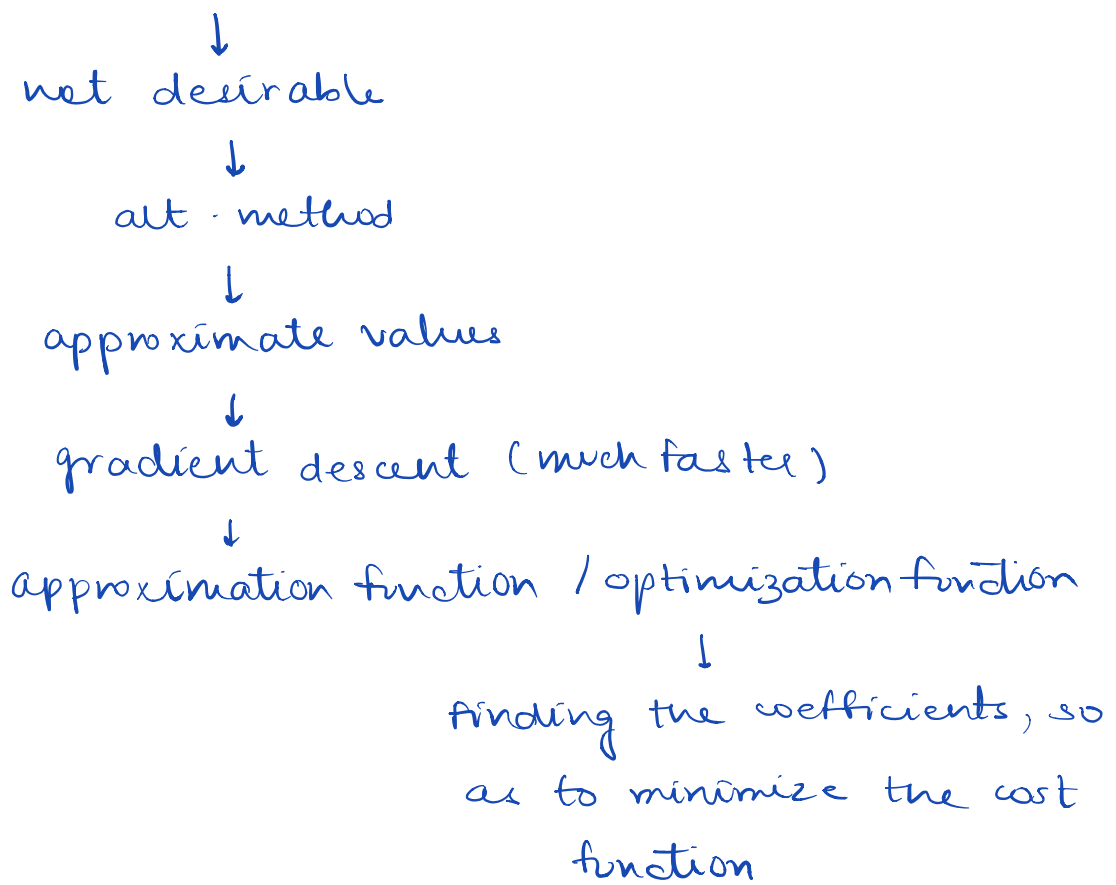 ↓
not desirable
↓
alt. method
↓
approximate values
↓
gradient descent (much faster)
↓
approximation function / optimization function
↓
finding the coefficients, so
as to minimize the cost
function